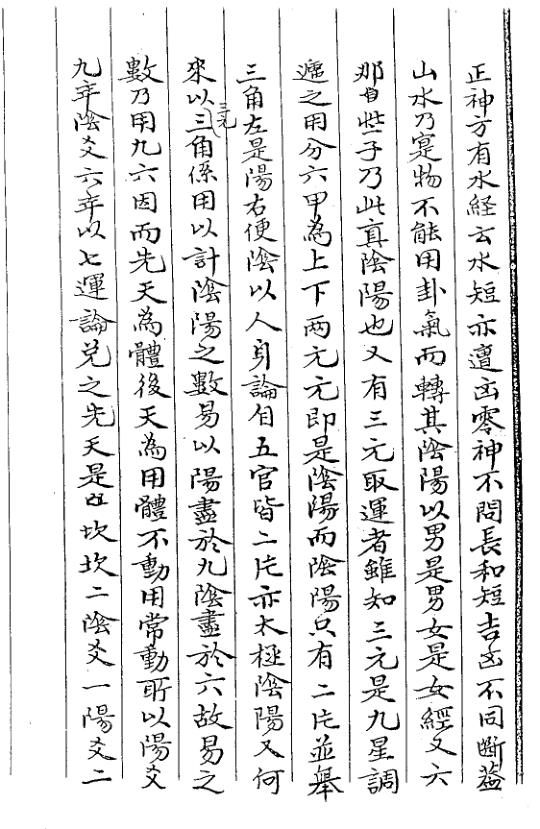 正神方有水経云水短亦遭凶零神不問長和短吉凶不同断葢
山水乃寔物不能用卦氣而轉其陰陽以男是男女是女經又六
那㫖些子乃此真陰陽也又有三元取運者雖知三元是九星調
遞之用分六甲為上下両元元即是陰陽而陰陽只有二片並舉
三角左是陽右便陰以人身論自五官皆二片亦太極陰陽又何
來以三角係用以計陰陽之數易以陽盡於九陰盡於六故易之
三元
數乃用九六因而先天為體後天為用體不動用常動所以陽爻
九年陰爻六年以七運論兌之先天是坎坎二陰爻一陽爻二